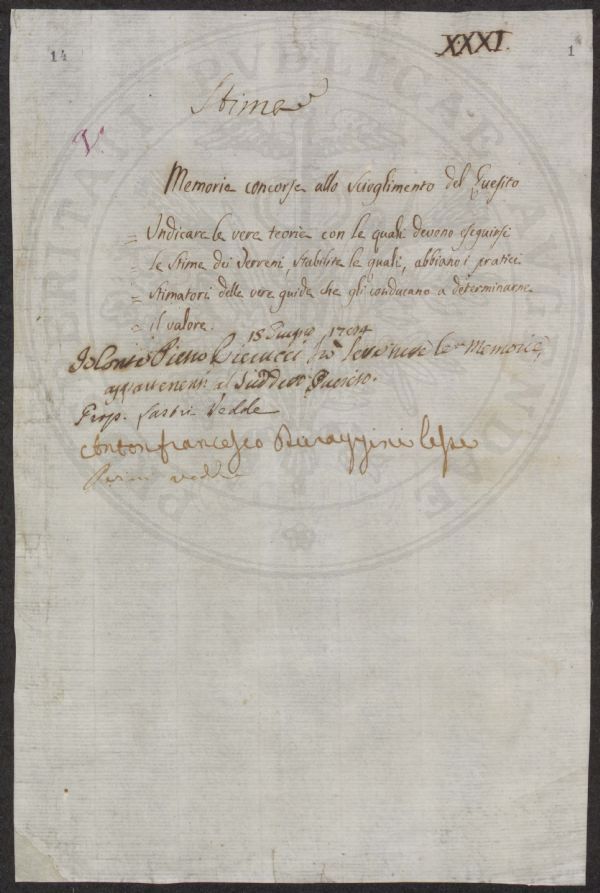 14
XXXI.
1
Stime
V.
Memorie concorse allo scioglimento del Quesito
= Indicare le vere teorie con le quali devono eseguirsi
= le Stime dei Terreni, stabilite le quali, abbiano i pratici
= stimatori delle vere guide che gli conducano a determinarne
= il valore.
15 Giugno 1794
Io Conte Pietro ho le Memorie,
appartenenti al Sudd. Quesito.
Prop. Lastri Vedde
Conton francesco lesse
vedde